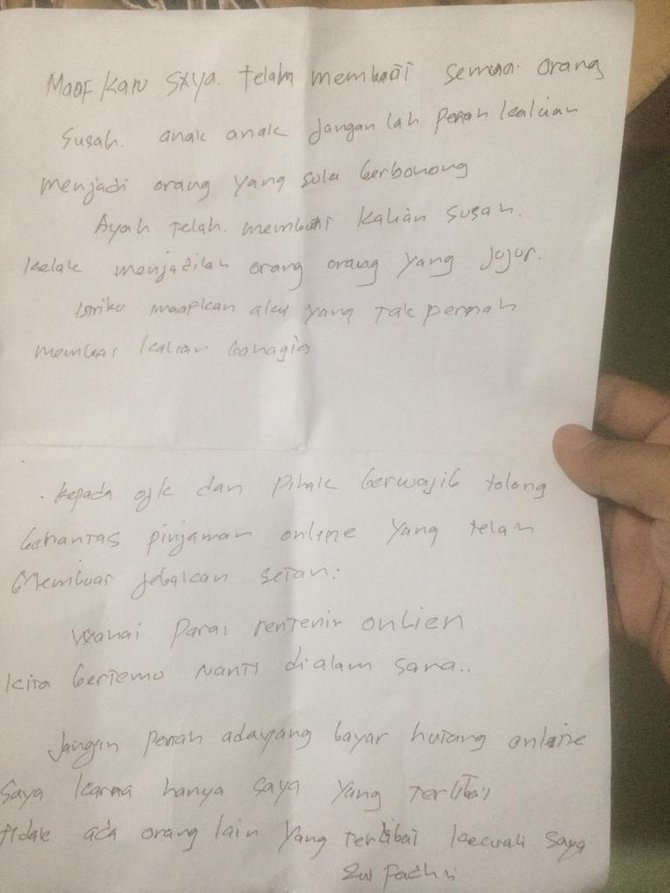 Maaf kan saya. telah membuat semua. orang
susah. anak anak jangan lah pernah kalian
menjadi orang yang suka berbohong
Ayah telah. membuat kalian susah.
kelak menjadilah orang orang yang jujur.
istriku maapkan aku yang tak pernah
membuat kalian bahagia
. kepada ojk dan pihak berwajib tolong
berantas pinjaman online yang telah
Membuat jebakan setan:
wahai para rentenir onlien
kita bertemu nanti dialam sana..
Jangan pernah adayang bayar hutang online
saya karna hanya saya yang terlibat
tidak ada orang lain yang terlibat kecuali saya